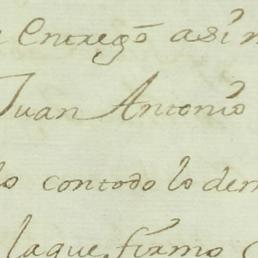 entregó asi
Juan Antonio
lo contodo lo dem
laque firmo